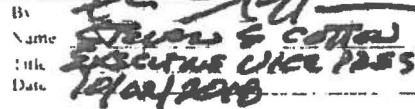 By
Name Steven G Cotton
Title Executive Vice Pres
Date 10/02/2018